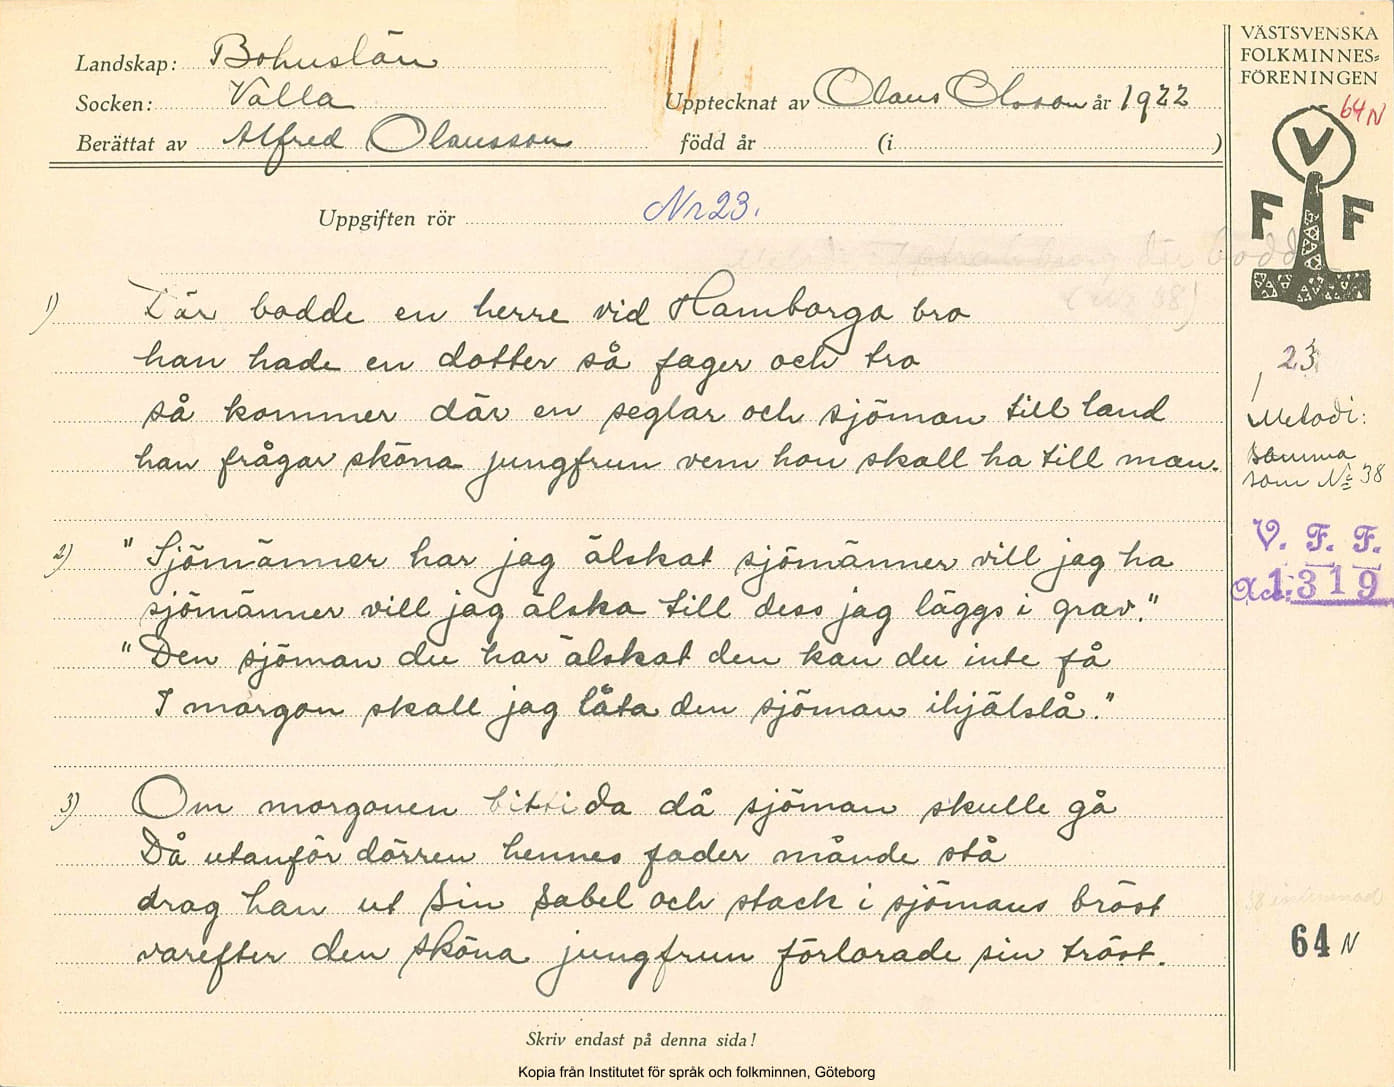 Landskap: Bohuslän
Socken: Valla
Upptecknat av Olaus Olsson år 1922
Berättat av Alfred Olausson född år (i )
VÄSTSVENSKA
FOLKMINNES=
FÖRENINGEN
64 N
V
F F
Uppgiften rör Nr 23.
Melodi: där bodde
(Nr 38)
1) Där bodde en herre vid Hamborga bro
han hade en dotter så fager och tro
så kommer där en seglar och sjöman till land
han frågar sköna jungfrun vem hon skall ha till man.
2) "Sjömänner har jag älskat sjömänner vill jag ha
sjömänner vill jag älska till dess jag läggs i grav."
"Den sjöman du har älskat den kan du inte få
I morgon skall jag låta den sjöman ihjälslå."
3) Om morgonen bittida då sjöman skulle gå
Då utanför dörren hennes fader månde stå
drog han ut sin sabel och stack i sjömans bröst
varefter den sköna jungfrun förlorade sin tröst.
23
Melodi:
samma
som No 38
V. F. F.
Acc: 1319
64 N
Skriv endast på denna sida!
Kopia från Institutet för språk och folkminnen, Göteborg